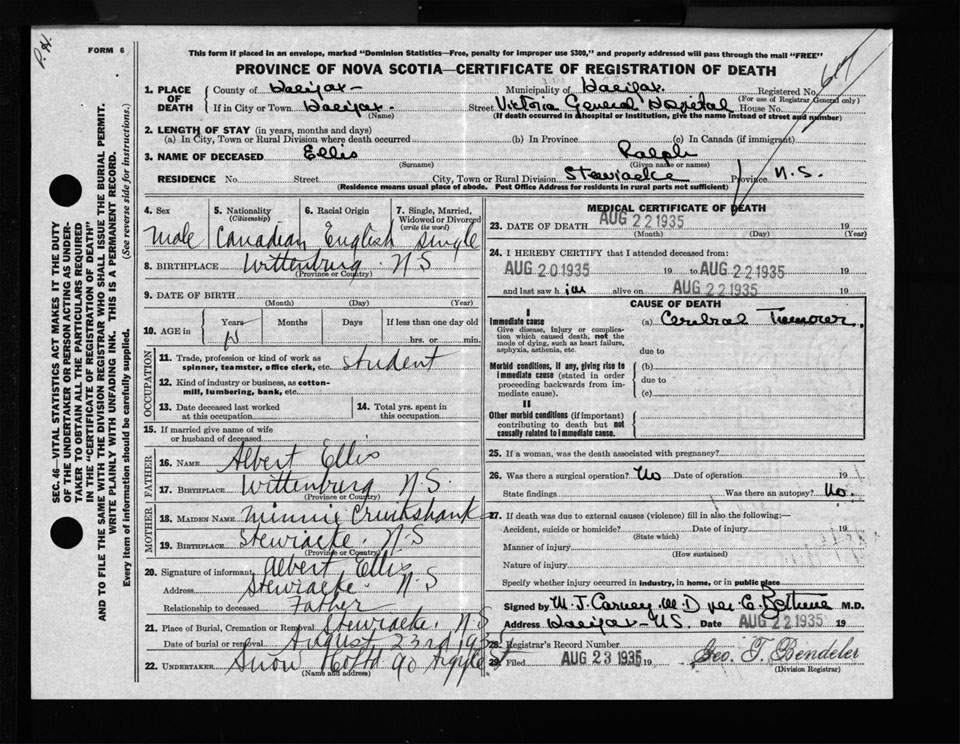 P.H.
FORM 6
This form if placed in an envelope, marked "Dominion Statistics—Free, penalty for improper use $300," and properly addressed will pass through the mail "FREE"
PROVINCE OF NOVA SCOTIA—CERTIFICATE OF REGISTRATION OF DEATH
617
SEC. 46—VITAL STATISTICS ACT MAKES IT THE DUTY
OF THE UNDERTAKER OR PERSON ACTING AS UNDER-
TAKER TO OBTAIN ALL THE PARTICULARS REQUIRED
IN THE "CERTIFICATE OF REGISTRATION OF DEATH"
AND TO FILE THE SAME WITH THE DIVISION REGISTRAR WHO SHALL ISSUE THE BURIAL PERMIT.
WRITE PLAINLY WITH UNFADING INK. THIS IS A PERMANENT RECORD.
Every item of information should be carefully supplied. (See reverse side for instructions.)
1. PLACE OF DEATH
County of Halifax Municipality of Halifax Registered No.
(For use of Registrar General only)
If in City or Town Halifax Street Victoria General Hospital House No.
(Name) (If death occurred in a hospital or institution, give the name instead of street and number)
2. LENGTH OF STAY (in years, months and days)
(a) In City, Town or Rural Division where death occurred (b) In Province (c) In Canada (if immigrant)
3. NAME OF DECEASED Ellis Ralph
(Surname) (Given name or names)
RESIDENCE No. Street City, Town or Rural Division Stewiacke Province N.S.
(Residence means usual place of abode. Post Office Address for residents in rural parts not sufficient)
4. Sex 5. Nationality (Citizenship) 6. Racial Origin 7. Single, Married, Widowed or Divorced (write the word)
Male Canadian English Single
8. BIRTHPLACE Wittenburg N S
(Province or Country)
9. DATE OF BIRTH
(Month) (Day) (Year)
10. AGE in Years Months Days If less than one day old
hrs. or min.
OCCUPATION
11. Trade, profession or kind of work as spinner, teamster, office clerk, etc. Student
12. Kind of industry or business, as cotton-mill, lumbering, bank, etc.
13. Date deceased last worked at this occupation 14. Total yrs. spent in this occupation
15. If married give name of wife or husband of deceased
FATHER
16. NAME Albert Ellis
17. BIRTHPLACE Wittenburg N.S.
(Province or Country)
MOTHER
18. MAIDEN NAME Minnie Cruikshank
19. BIRTHPLACE Stewiacke. N.S
(Province or Country)
20. Signature of informant Albert Ellis
Address Stewiacke N S
Relationship to deceased Father
21. Place of Burial, Cremation or Removal Stewiacke. N.S
Date of burial or removal August 23rd 1935
22. UNDERTAKER Snow Co Ltd 90 Argyle St
(Name and address)
MEDICAL CERTIFICATE OF DEATH
23. DATE OF DEATH AUG 22 1935
(Month) (Day) (Year)
24. I HEREBY CERTIFY that I attended deceased from:
AUG 20 1935 19 to AUG 22 1935 19
and last saw him alive on AUG 22 1935 19
CAUSE OF DEATH
I
Immediate cause (a) Cerebral Tumour.
Give disease, injury or complica-
tion which caused death, not the
mode of dying, such as heart failure,
asphyxia, asthenia, etc. due to
Morbid conditions, if any, giving rise to (b)
immediate cause (stated in order due to
proceeding backwards from im-
mediate cause). (c)
II
Other morbid conditions (if important)
contributing to death but not
causally related to immediate cause.
25. If a woman, was the death associated with pregnancy?
26. Was there a surgical operation? No Date of operation 19
State findings Was there an autopsy? No.
27. If death was due to external causes (violence) fill in also the following:—
Accident, suicide or homicide? Date of injury 19
(State which)
Manner of injury
(How sustained)
Nature of injury
Specify whether injury occurred in industry, in home, or in public place
Signed by M. J. Carney M.D per C. Bethune M.D.
Address Halifax N.S. Date AUG 22 1935 19
28. Registrar's Record Number
29. Filed AUG 23 1935 19 Geo. F. Bendeler
(Division Registrar)